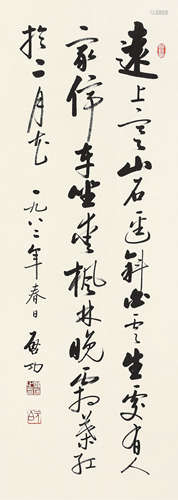 遠上寒山石徑斜白雲生處有人
家停車坐愛楓林晚霜葉紅
於二月花 一九八二年春日 啟功